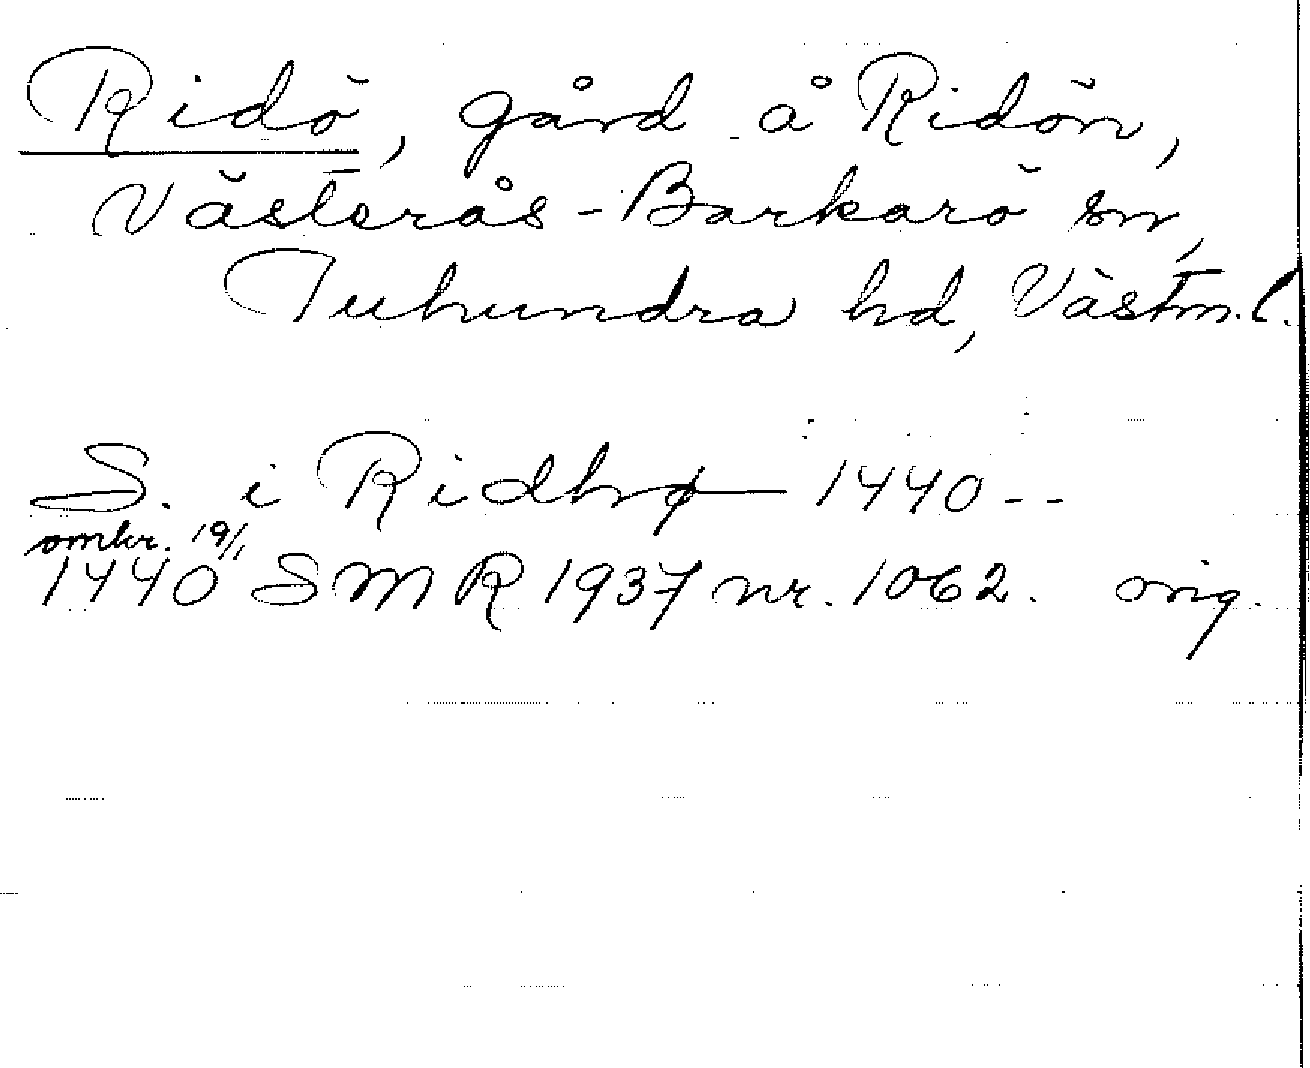 Ridö, gård å Ridön,
Västerås-Barkarö sn,
Tuhundra hd, Västm. l.
S. i Ridhø 1440--
omkr. 19/1
1440 SMR 1937 nr. 1062. orig.